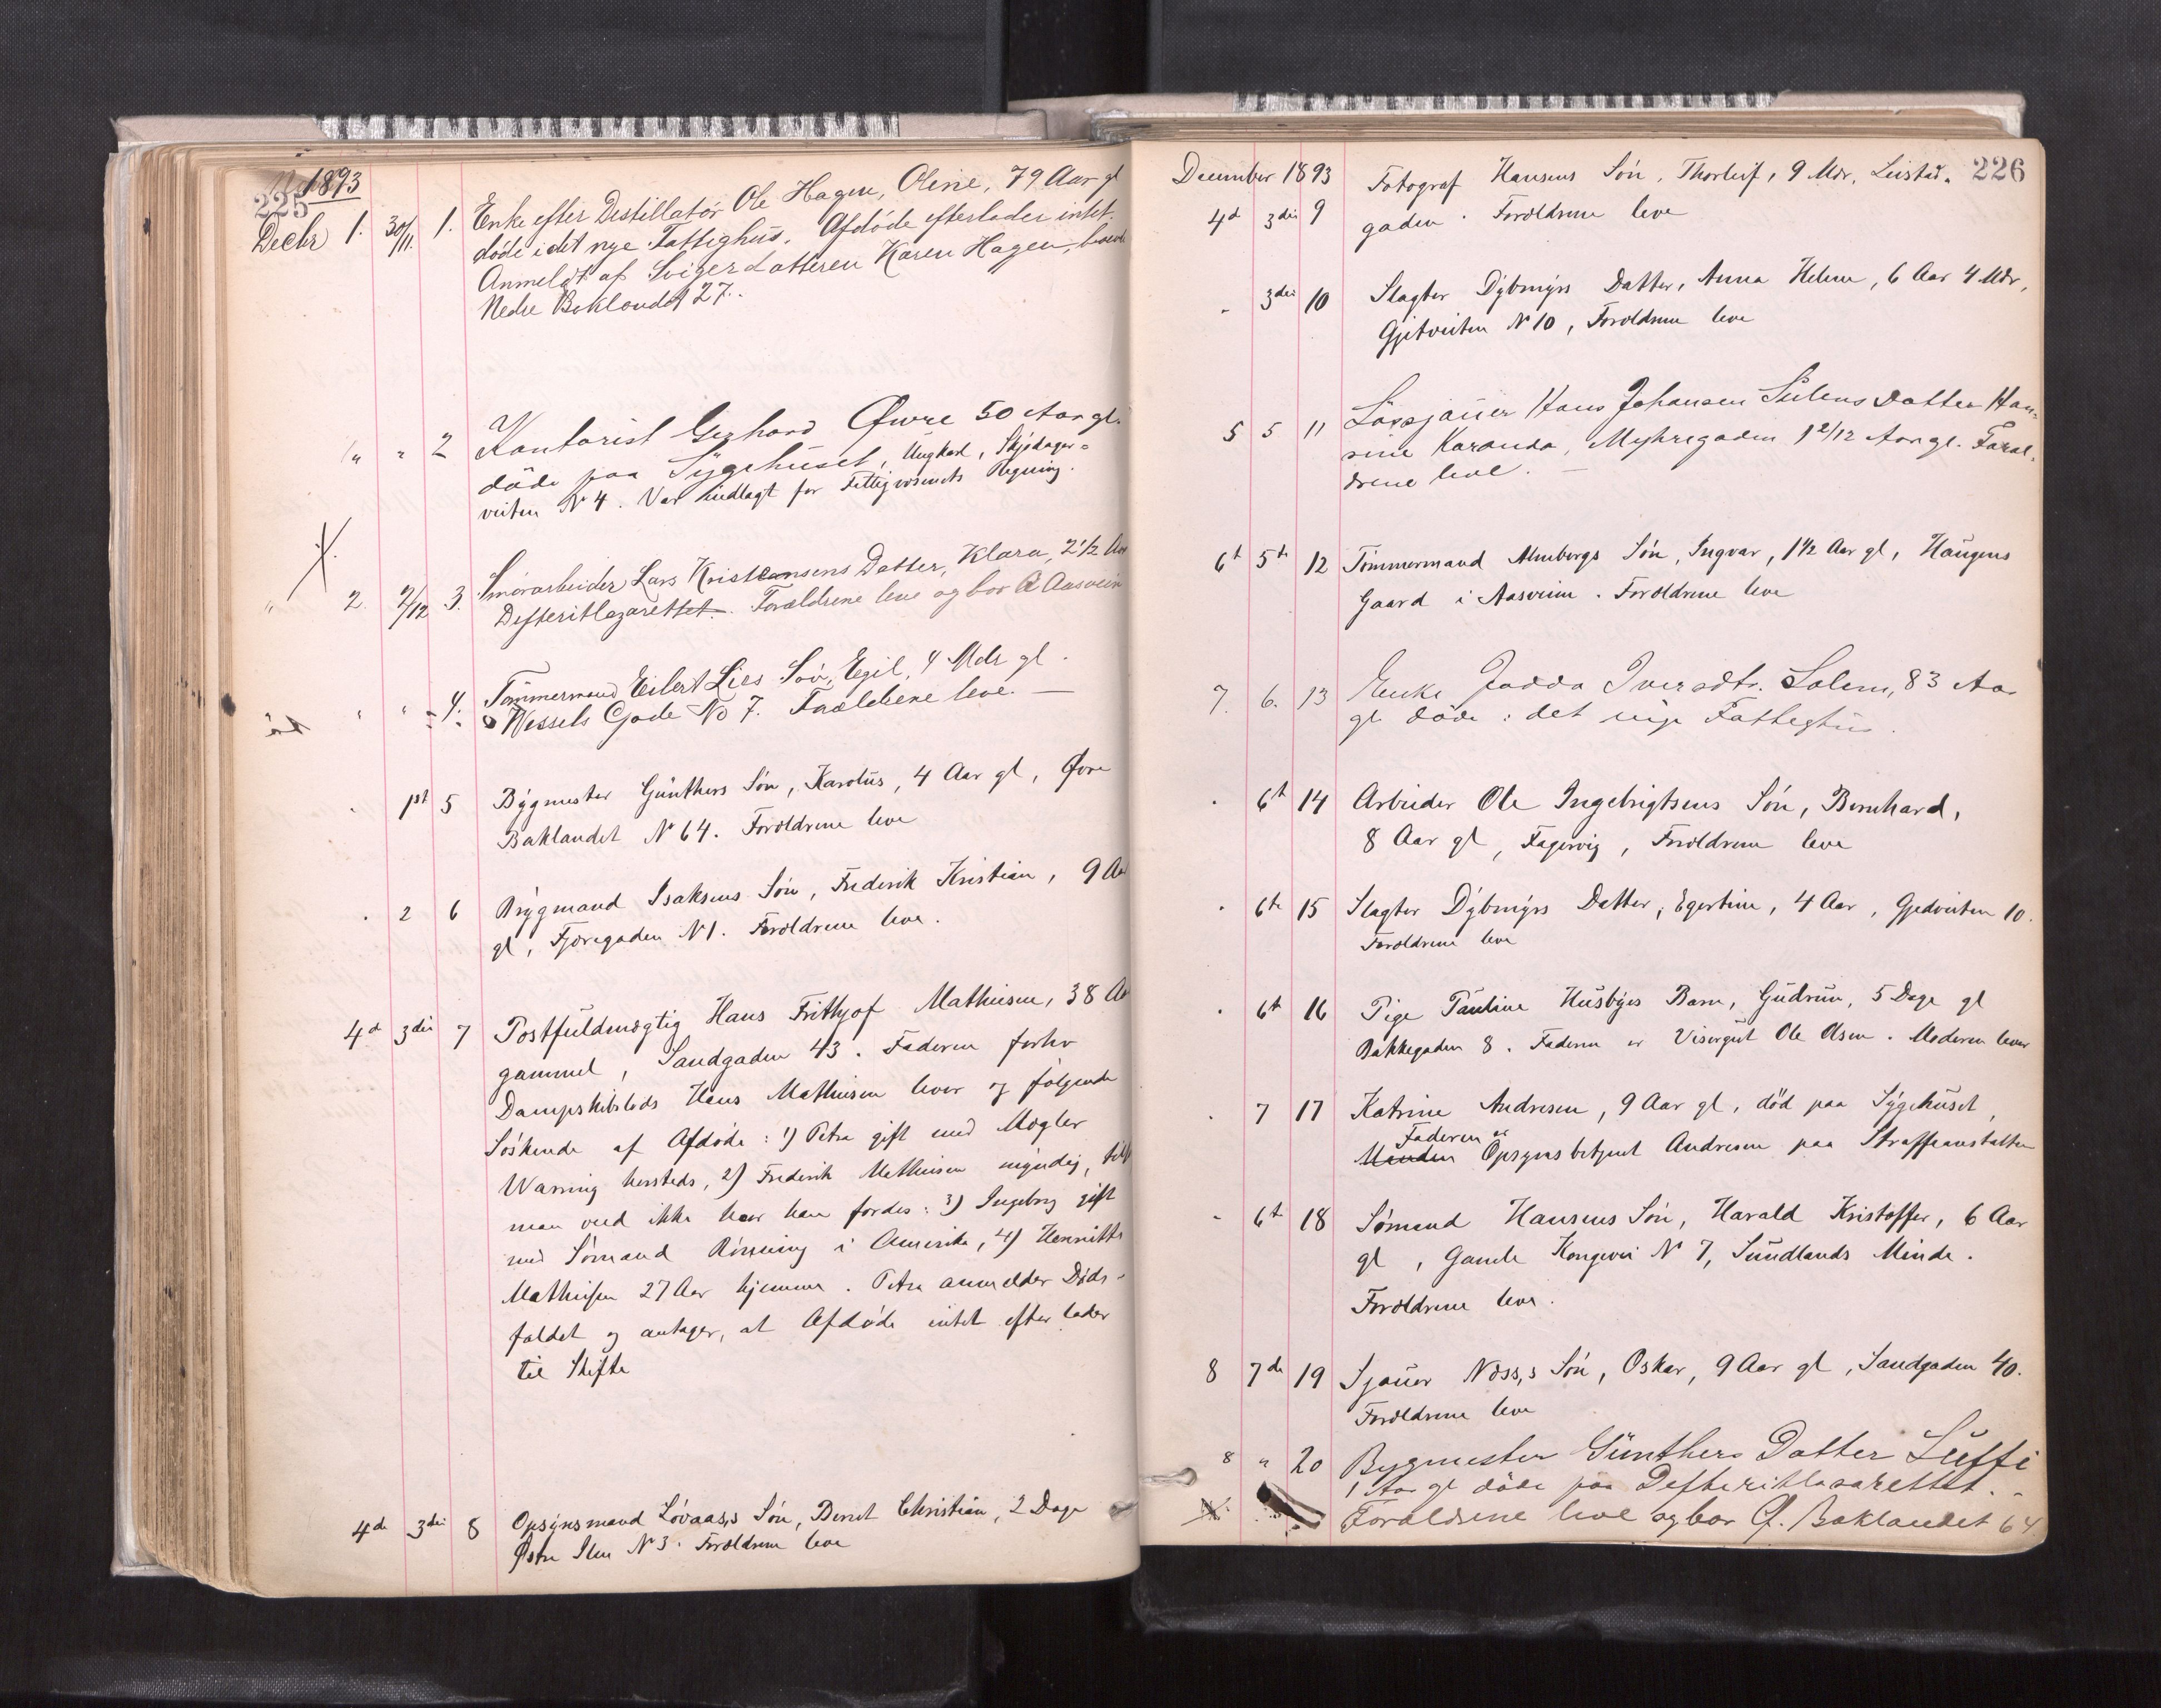 225
1893
Decbr 1. 30/11. 1. Enke efter Destillatør Ole Hagen, Oline, 79 Aar gl
døde i det nye Fattighus. Afdøde efterlader intet.
Anmeldt af Svigerdatteren Karen Hagen, boende
Nedre Baklandet 27.
" " 2 Kontorist Gerhard Øwre 50 Aar gl.
døde paa Sygehuset, Ungkarl, Skjødager-
veiten No 4. Var indlagt for Fattigvæsenets Regning.
" 2. 2/12 3. Smørarbeider Lars Kristensens Datter, Klara, 2 1/2 Aar
Defteritlazarettet. Forældrene leve og bor Aasvein
" " 4. Tømmermand Eilert Lies Søn, Egil, 4 Mdr gl.
Wessels Gade No 7. Forældrene leve. —
1st 5 Bygmester Günthers Søn, Karolus, 4 Aar gl, Øvre
Baklandet No 64. Forældrene leve
2 6 Brygmand Isaksens Søn, Frederik Kristian, 9 Aar
gl, Fjæregaden No 1. Forældrene leve.
4d 3die 7 Postfuldmægtig Hans Frithjof Mathiesen, 38 Aar
gammel, Sandgaden 43. Faderen forhv
Dampskibslods Hans Mathiesen lever og følgende
Søskende af Afdøde: 1) Petra gift med Mægler
Warning hersteds, 2) Frederik Mathiesen myndig,
man ved ikke hvor han fordes: 3) Ingeborg gift
med Sømand Rønning i Amerika, 4) Henriette
Mathiesen 27 Aar hjemme. Petra anmelder Døds-
faldet og antager, at Afdøde intet efterlader
til Skifte
4de 3die 8 Opsynsmand Løvaas,s Søn, Bernt Christian, 2 Dage
Østre Ilen No 3. Forældrene leve
226
December 1893
4d 3die 9 Fotograf Hansens Søn, Thorleif, 9 Mdr, Leistad-
gaden. Forældrene leve
" 3die 10 Slagter Dybmyrs Datter, Anna Helene, 6 Aar 4 Mdr,
Gjetveiten No 10, Forældrene leve
5 5 11 Løssjauer Hans Johansen Sulens Datter Han-
sine Karanda, Myhregaden 1 2/12 Aar gl. Foræl-
drene leve. —
6t 5te 12 Tømmermand Almbergs Søn, Ingvar, 1 1/2 Aar gl, Haugens
Gaard i Aasveien. Forældrene leve
7. 6. 13 Enke Jadda Iversdtr. Solem, 83 Aar
gl. døde i det nye Fattighus.
" 6t 14 Arbeider Ole Ingebrigtsens Søn, Bernhard,
8 Aar gl, Fagervig, Forældrene leve
" 6te 15 Slagter Dybmyrs Datter, Egertine, 4 Aar, Gjedveiten 10.
Forældrene leve
" 6t 16 Pige Pauline Husbyes Barn, Gudrun, 5 Dage gl
Bakkegaden 8. Faderen er Visergut Ole Olsen. Moderen lever
" 7 17 Katrine Andresen, 9 Aar gl, død paa Sygehuset,
Faderen er
Manden Opsynsbetjent Andresen paa Strafanstalten
" 6t 18 Sømand Hansens Søn, Harald Kristoffer, 6 Aar
gl, Gamle Kongevei No 7, Sundlands Minde.
Forældrene leve.
8 7de 19 Sjauer Næss,s Søn, Oskar, 9 Aar gl, Sandgaden 40.
Forældrene leve
8 " 20 Bygmester Günthers Datter Luffi
1 Aar gl døde paa Defteritlasarettet. -
Forældrene leve og bor Ø. Baklandet 64.